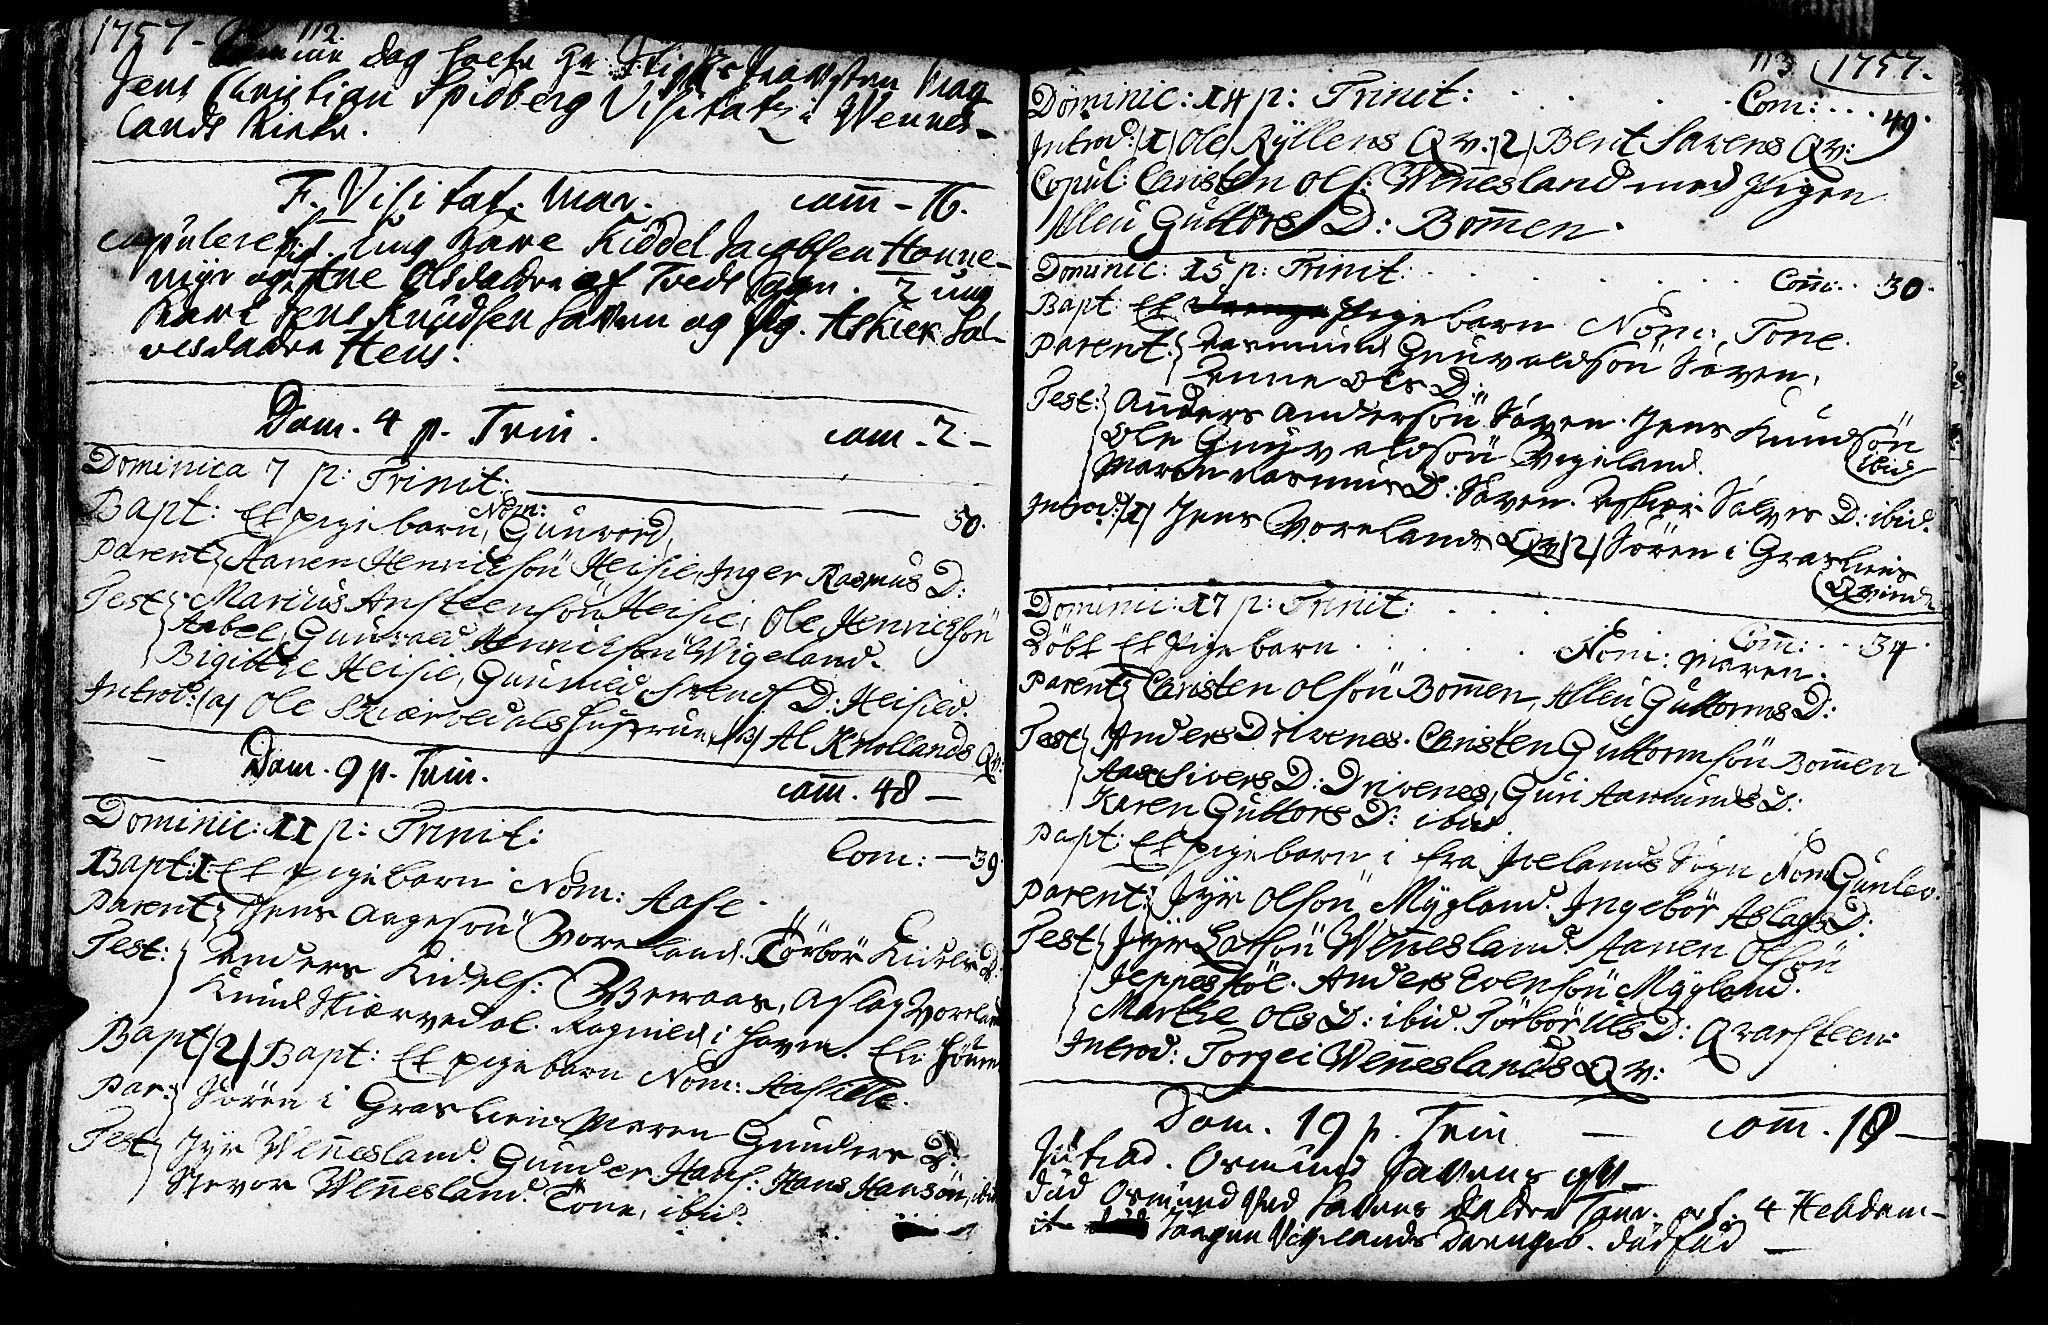 1757. 112.
Samme dag holte Hr. Stigts Provsten Mag
Jens Christian Spidberg Visitatz i Wennes-
lands Kirke.
F. Visitat: Mar. com̄ - 16.
copuleret 1. ung Karl Kiddel Jacobsen Honne-
myr og Ane Olsdatter af Tveds Sogn. 2 ung
Karl Jens Knudsen Saven og Pig. Asther Sal-
vesdatter Heus.
Dom. 4 p. Trin. com. 2 -
Dominica 7 p: Trinit:
Bapt: Et Pigebarn, Nom: Gunvord, 50.
Parent: Aanen Henrichsön Heisie, Inger Rasmus D:
Test: Marcus Ansteensön Heisie, Ole Henrichsön
Aabel, Gunvald Henrichsön Vigeland.
Birgitthe Heisie, Gunnild Svends D: Heisie.
Introd: /a/ Ole Skiærvedals Hustrue, /B/ Al Knollands Qv:
Dom. 9 p. Trin. com̄. 48 -
Dominic: 11 p: Trinit: Com: - 39
Bapt: 1: Et Pigebarn Nom: Aase.
Parent: Jens Aagesön Voreland. Törbör Kidels D:
Test: Anders Kidels: Beraas, Aslag Voreland
Knud Skiærvedal. Ragnild i Haven. Eli Hönne
Bapt /2/ Bapt: Et Pigebarn Nom: Aashille.
Par: Sören i Graslien Maren Gunders D:
Test: Jyr Wen̄esland. Gunder Hans: Hans Hansön, ibid
Stevor Wen̄esland. Tone, ibid.
113 1757.
Dominic: 14 p: Trinit: Com: . . . 49.
Introd: /1/ Ole Ryllens Qv. /2/ Bent Savens Qv:
Copul: Christen Ols: Wen̄esland med Pigen
Alleu Guttors D: Bom̄en.
Dominic: 15 p: Trinit: Com̄: . . 30.
Bapt: Et Pigebarn Nom: Tone.
Parent: Rasmund Gunvaldsön Saven,
Anne Ols D:
Test: Anders Andersön Saven. Jens Knudsön
Ole Gunvaldsön Vigeland. ibid
Maren Rasmus D: Saven. Asther Salves D: ibid.
Introd: /1/ Jens Vorelands Qv /2/ Sören i Grasliens
Qvinde
Dominic: 17 p: Trinit: Com̄: . . 34.
Döbt Et Pigebarn Nom: Maren.
Parent: Christen Olsön Bom̄en, Alleu Guttorms D:
Test: Anders Drivenes. Christen Guttormsön Bom̄en
Aase Sivers D: Drivenes, Guri Aamunds D:
Karen Guttors D: ibid.
Bapt: Et Pigebarn i fra Ivelands Sogn Nom Gunlev.
Parent: Jyr Olsön Mygland. Ingebör Aslags D:
Test: Jyr Larsön Wen̄esland. Aanen Olsön
Jeppestöl. Anders Evensön Mygland.
Marthe Ols D: ibid. Törbör Nils D: Qvarsteen.
Introd: Torgei Wen̄eslands Qv:
Dom. 19 p. Trin. — com̄. 18 —
Introd. Osmund Savens qv
död Osmund ved Savens datter Tone. æt. 4 Hebdom-
it Taagen Vigelands Drengeb. dödfød —